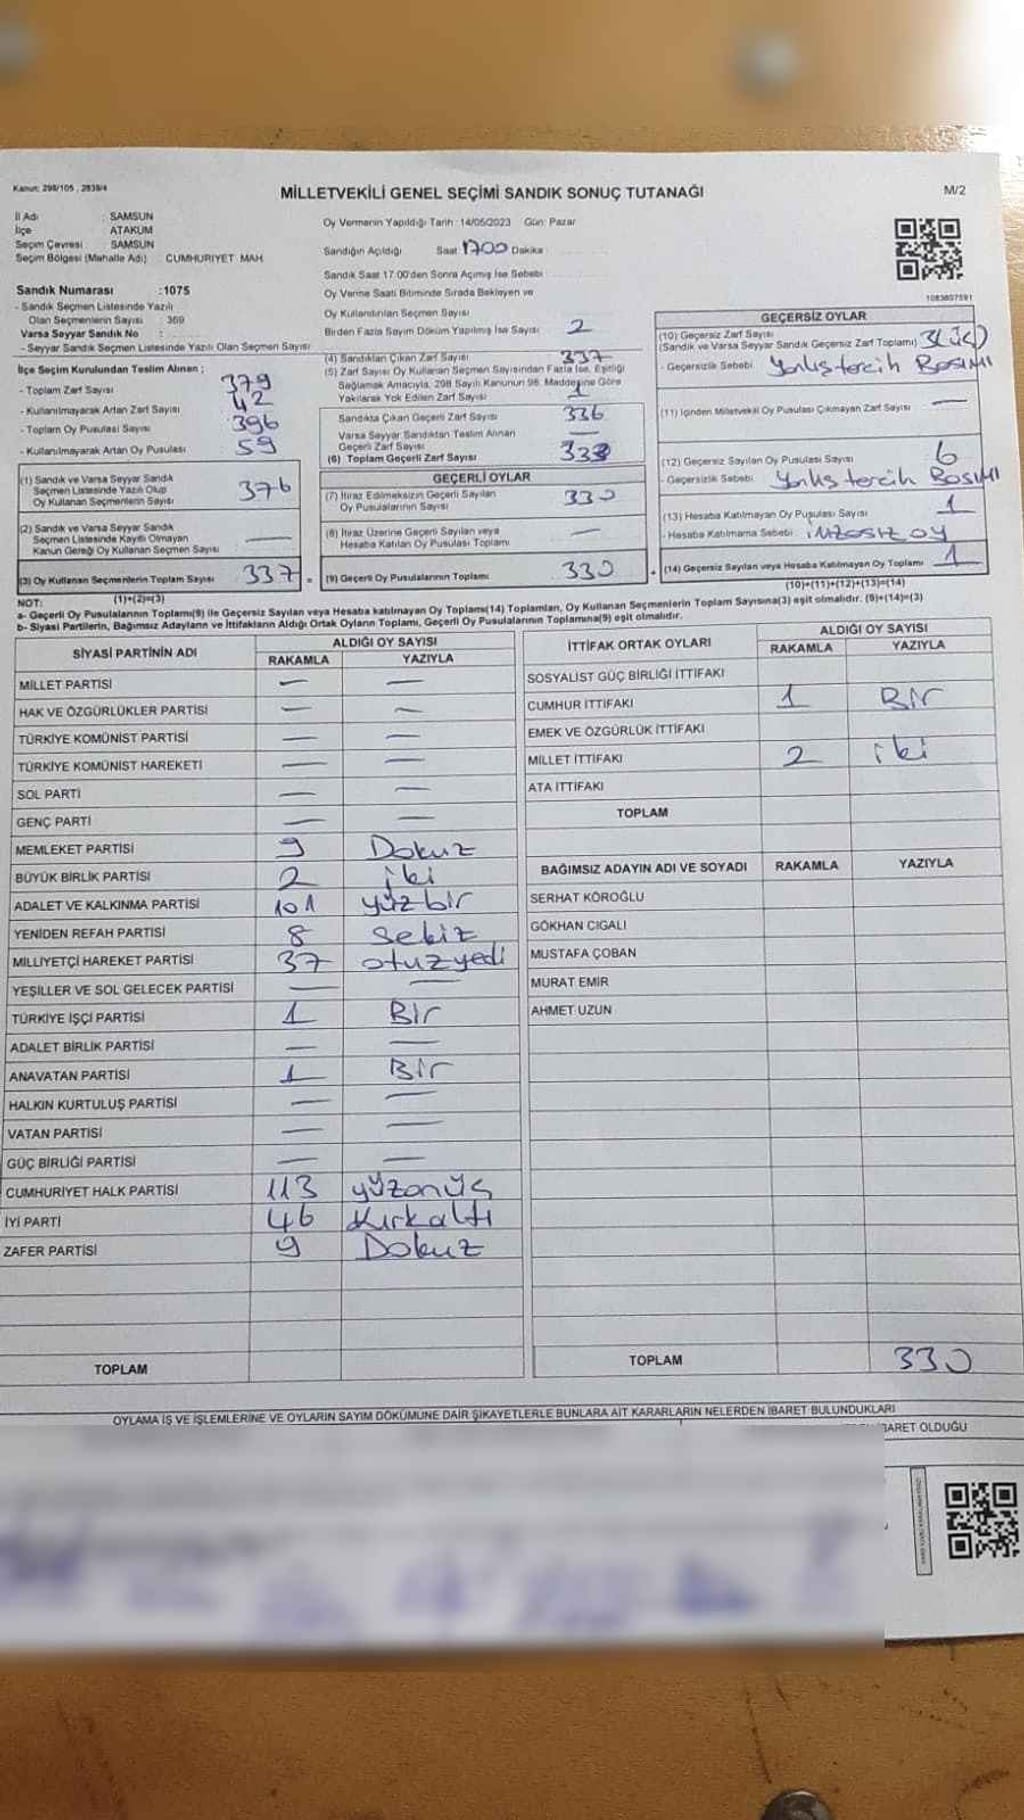 Kanun: 298/105 , 2839/4
MİLLETVEKİLİ GENEL SEÇİMİ SANDIK SONUÇ TUTANAĞI
M/2
İl Adı : SAMSUN
İlçe ATAKUM
Seçim Çevresi SAMSUN
Seçim Bölgesi (Mahalle Adı) CUMHURİYET MAH.
Sandık Numarası :1075
- Sandık Seçmen Listesinde Yazılı
Olan Seçmenlerin Sayısı : 369
Varsa Seyyar Sandık No :
- Seyyar Sandık Seçmen Listesinde Yazılı Olan Seçmen Sayısı
İlçe Seçim Kurulundan Teslim Alınan ;
- Toplam Zarf Sayısı 379
- Kullanılmayarak Artan Zarf Sayısı 42
- Toplam Oy Pusulası Sayısı 396
- Kullanılmayarak Artan Oy Pusulası 59
(1) Sandık ve Varsa Seyyar Sandık
Seçmen Listesinde Yazılı Olup
Oy Kullanan Seçmenlerin Sayısı 376
(2) Sandık ve Varsa Seyyar Sandık
Seçmen Listesinde Kayıtlı Olmayan
Kanun Gereği Oy Kullanan Seçmen Sayısı —
(3) Oy Kullanan Seçmenlerin Toplam Sayısı 337
(1)+(2)=(3)
Oy Vermenin Yapıldığı Tarih : 14/05/2023 Gün: Pazar
Sandığın Açıldığı Saat 1700 Dakika :
Sandık Saat 17.00'den Sonra Açımış İse Sebebi :
Oy Verme Saati Bitiminde Sırada Bekleyen ve
Oy Kullandırılan Seçmen Sayısı
Birden Fazla Sayım Döküm Yapılmış İse Sayısı 2
(4) Sandıktan Çıkan Zarf Sayısı 337
(5) Zarf Sayısı Oy Kullanan Seçmen Sayısından Fazla İse, Eşitliği
Sağlamak Amacıyla, 298 Sayılı Kanunun 98. Maddesine Göre
Yakılarak Yok Edilen Zarf Sayısı 1
Sandıkta Çıkan Geçerli Zarf Sayısı 336
Varsa Seyyar Sandıktan Teslim Alınan
Geçerli Zarf Sayısı —
(6) Toplam Geçerli Zarf Sayısı
GEÇERLİ OYLAR
(7) İtiraz Edilmeksizin Geçerli Sayılan
Oy Pusulalarının Sayısı 330
(8) İtiraz Üzerine Geçerli Sayılan veya
Hesaba Katılan Oy Pusulası Toplamı —
= (9) Geçerli Oy Pusulalarının Toplamı 330
1083807591
GEÇERSİZ OYLAR
(10) Geçersiz Zarf Sayısı
(Sandık ve Varsa Seyyar Sandık Geçersiz Zarf Toplamı) 3(üç)
- Geçersizlik Sebebi: Yanlış tercih Basımı
(11) İçinden Milletvekili Oy Pusulası Çıkmayan Zarf Sayısı —
(12) Geçersiz Sayılan Oy Pusulası Sayısı 6
- Geçersizlik Sebebi: Yanlış tercih Basımı
(13) Hesaba Katılmayan Oy Pusulası Sayısı 1
- Hesaba Katılmama Sebebi : imzasız oy
+ (14) Geçersiz Sayılan veya Hesaba Katılmayan Oy Toplamı 1
(10)+(11)+(12)+(13)=(14)
NOT:
a- Geçerli Oy Pusulalarının Toplamı(9) ile Geçersiz Sayılan veya Hesaba katılmayan Oy Toplamı(14) Toplamları, Oy Kullanan Seçmenlerin Toplam Sayısına(3) eşit olmalıdır. (9)+(14)=(3)
b- Siyasi Partilerin, Bağımsız Adayların ve İttifakların Aldığı Ortak Oyların Toplamı, Geçerli Oy Pusulalarının Toplamına(9) eşit olmalıdır.
SİYASİ PARTİNİN ADI ALDIĞI OY SAYISI
RAKAMLA YAZIYLA
MİLLET PARTİSİ — —
HAK VE ÖZGÜRLÜKLER PARTİSİ — —
TÜRKİYE KOMÜNİST PARTİSİ — —
TÜRKİYE KOMÜNİST HAREKETİ — —
SOL PARTİ — —
GENÇ PARTİ — —
MEMLEKET PARTİSİ 9 Dokuz
BÜYÜK BİRLİK PARTİSİ 2 iki
ADALET VE KALKINMA PARTİSİ 101 yüz bir
YENİDEN REFAH PARTİSİ 8 Sekiz
MİLLİYETÇİ HAREKET PARTİSİ 37 otuzyedi
YEŞİLLER VE SOL GELECEK PARTİSİ — —
TÜRKİYE İŞÇİ PARTİSİ 1 Bir
ADALET BİRLİK PARTİSİ — —
ANAVATAN PARTİSİ 1 Bir
HALKIN KURTULUŞ PARTİSİ — —
VATAN PARTİSİ — —
GÜÇ BİRLİĞİ PARTİSİ — —
CUMHURİYET HALK PARTİSİ 113 yüzonüç
İYİ PARTİ 46 Kırkaltı
ZAFER PARTİSİ 9 Dokuz
TOPLAM
İTTİFAK ORTAK OYLARI ALDIĞI OY SAYISI
RAKAMLA YAZIYLA
SOSYALİST GÜÇ BİRLİĞİ İTTİFAKI
CUMHUR İTTİFAKI 1 Bir
EMEK VE ÖZGÜRLÜK İTTİFAKI
MİLLET İTTİFAKI 2 iki
ATA İTTİFAKI
TOPLAM
BAĞIMSIZ ADAYIN ADI VE SOYADI RAKAMLA YAZIYLA
SERHAT KÖROĞLU
GÖKHAN CIGALI
MUSTAFA ÇOBAN
MURAT EMİR
AHMET UZUN
TOPLAM 330
OYLAMA İŞ VE İŞLEMLERİNE VE OYLARIN SAYIM DÖKÜMÜNE DAİR ŞİKAYETLERLE BUNLARA AİT KARARLARIN NELERDEN İBARET BULUNDUKLARI
İBARET OLDUĞU